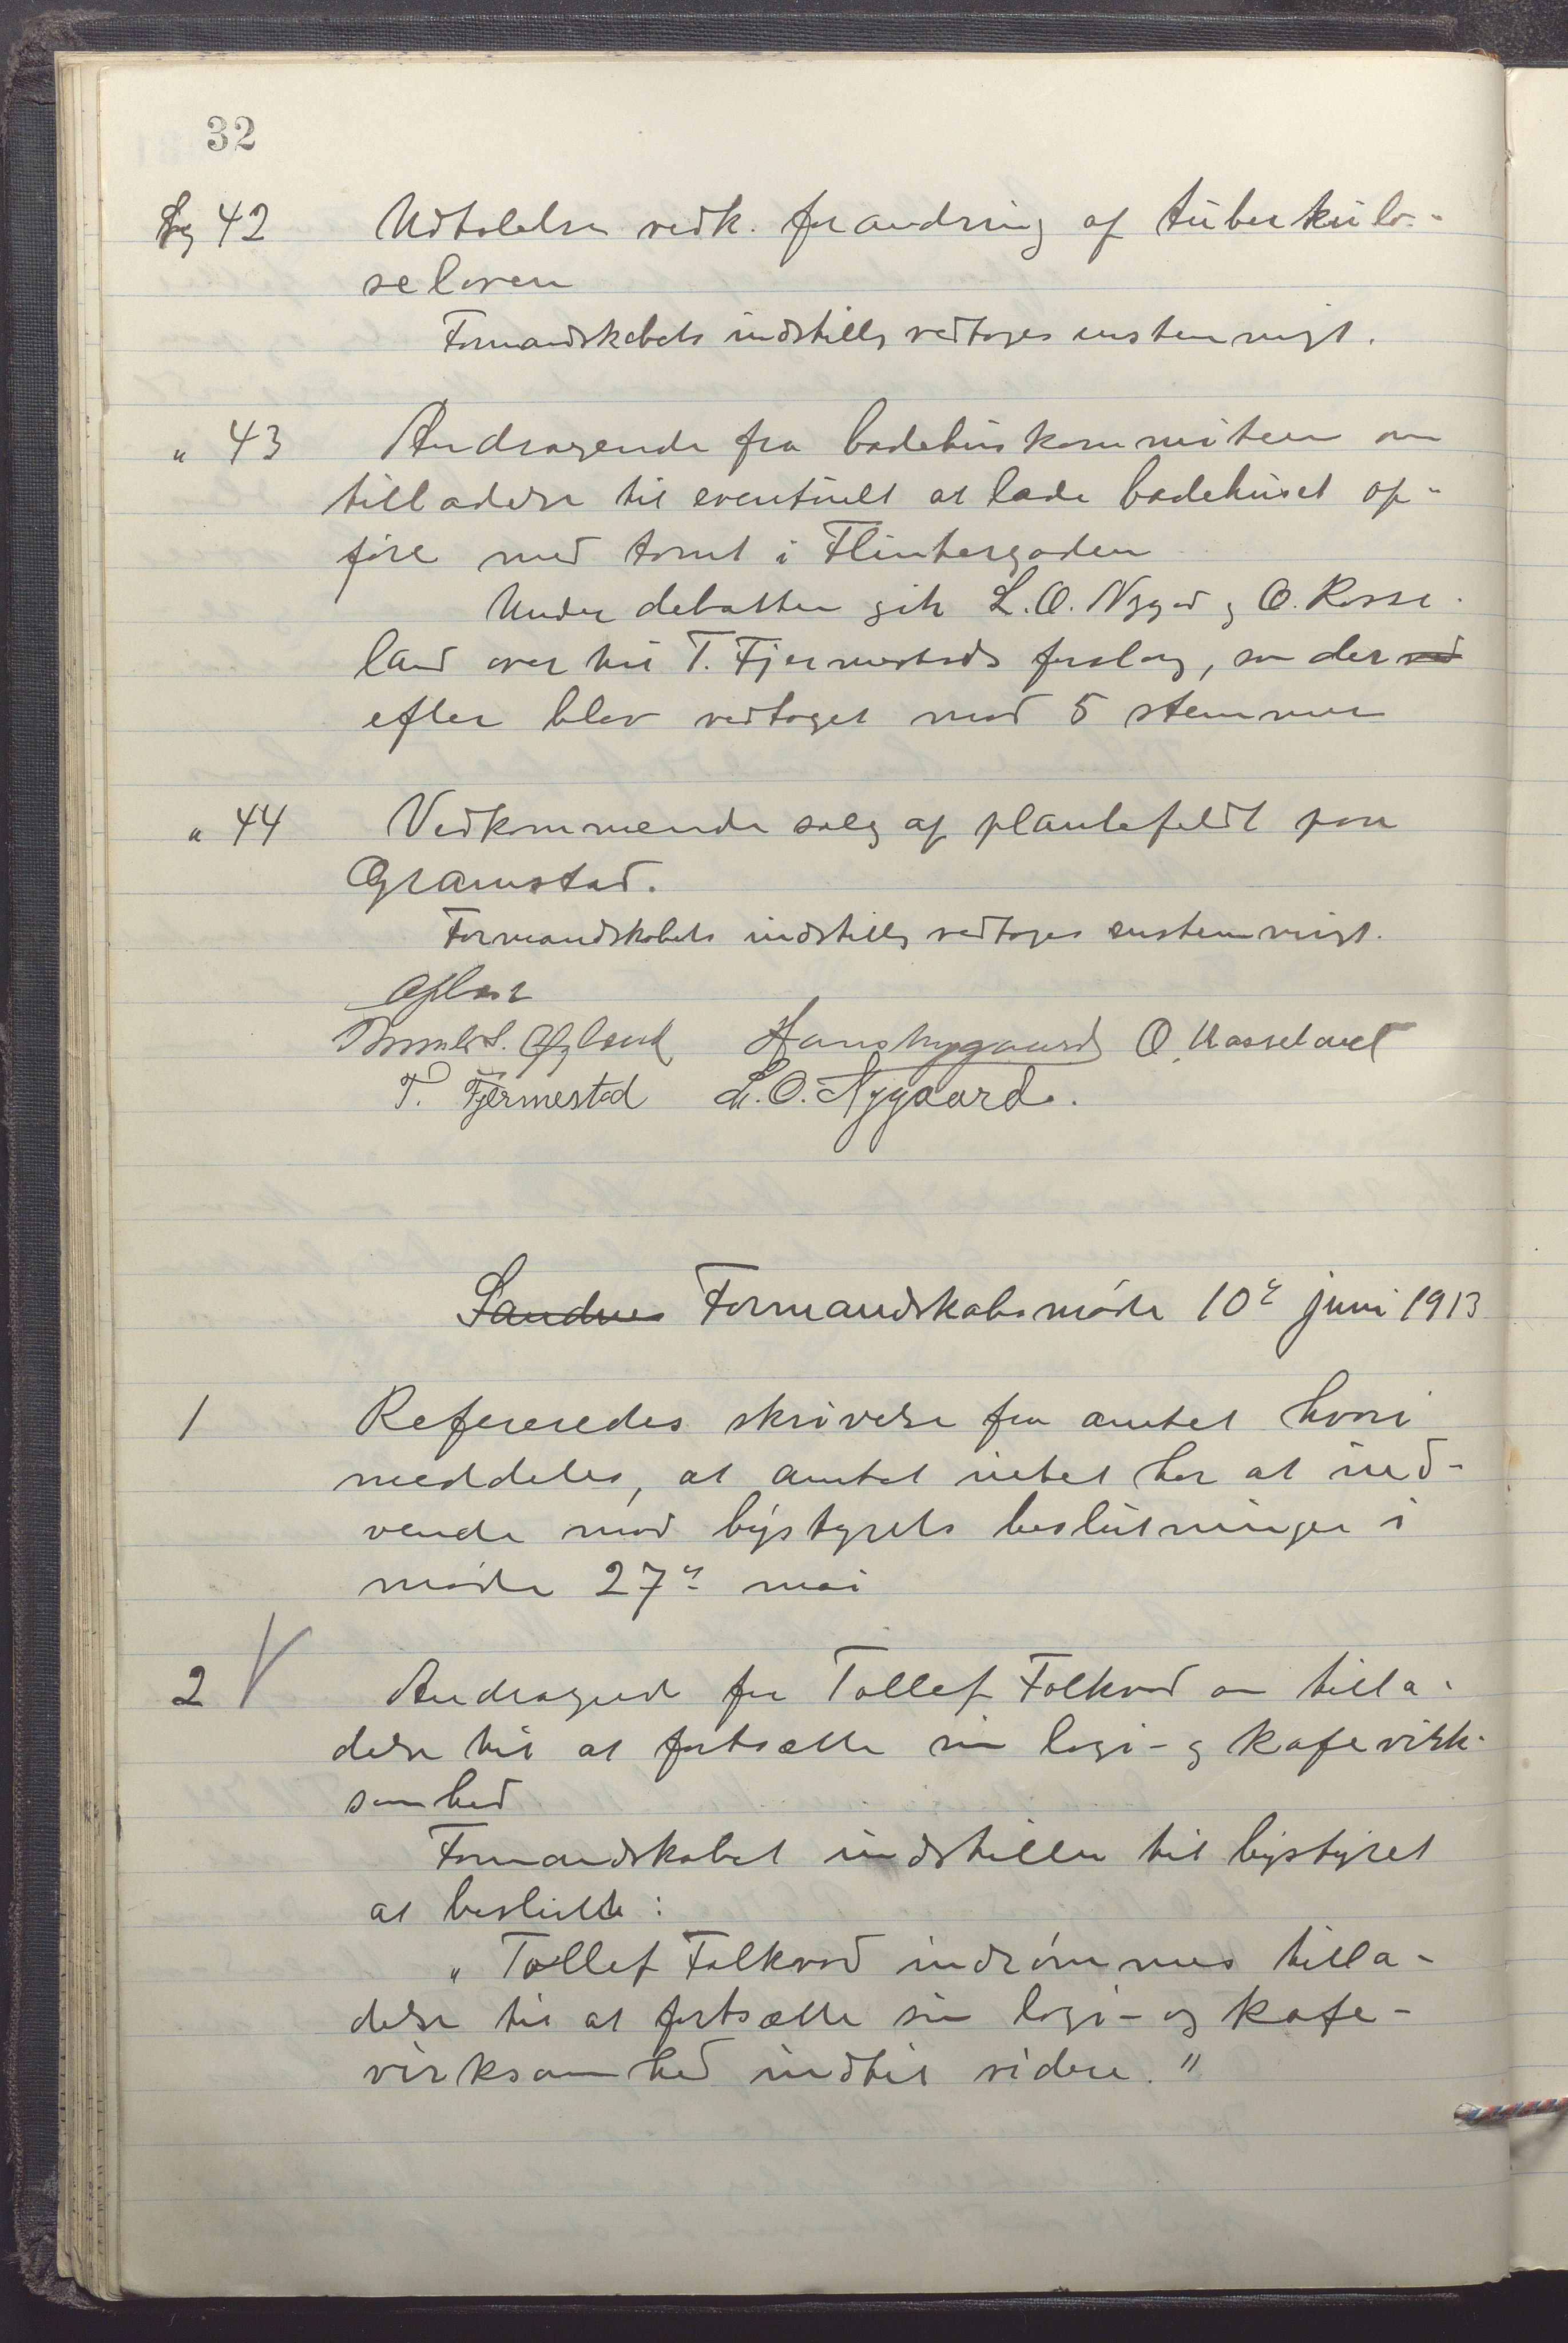 32
Sag 42 Udtalelse vedk. forandring af tuberkulo-
seloven
Formandskabets indstillg vedtoges enstemmigt.
" 43 Andragende fra badehuskommiteen om
tilladelse til eventuelt at lade badehuset op-
føre med tomt i Flintergaden
Under debatten gik L. O. Nygrd og O. Rosse-
land over til T. Fjermestads forslag, som der ved
efter blev vedtaget mod 5 stemmer
" 44 Vedkommende salg af plantefeldt paa
Gramstad.
Formandskabets indstillg vedtoges enstemmigt.
Oplæst
Øglend Hans Nygaard O. Rosseland
T. Fjermestad L. O. Nygaard.
Sandnes Formandskabsmøde 10de juni 1913
1 Refereredes skrivelse fra amtet hvori
meddeles, at amtet intet har at ind-
vende mod bystyrets beslutninger i
møde 27de mai
2 V Andragende fra Tollef Folkvord om tilla-
delse til at fortsætte sin logi- og kafevirk-
somhed
Formandskabet indstiller til bystyret
at beslutte:
" Tollef Folkvord indrømmes tilla-
delse til at fortsætte sin logi- og kafe-
virksomhed indtil videre. "